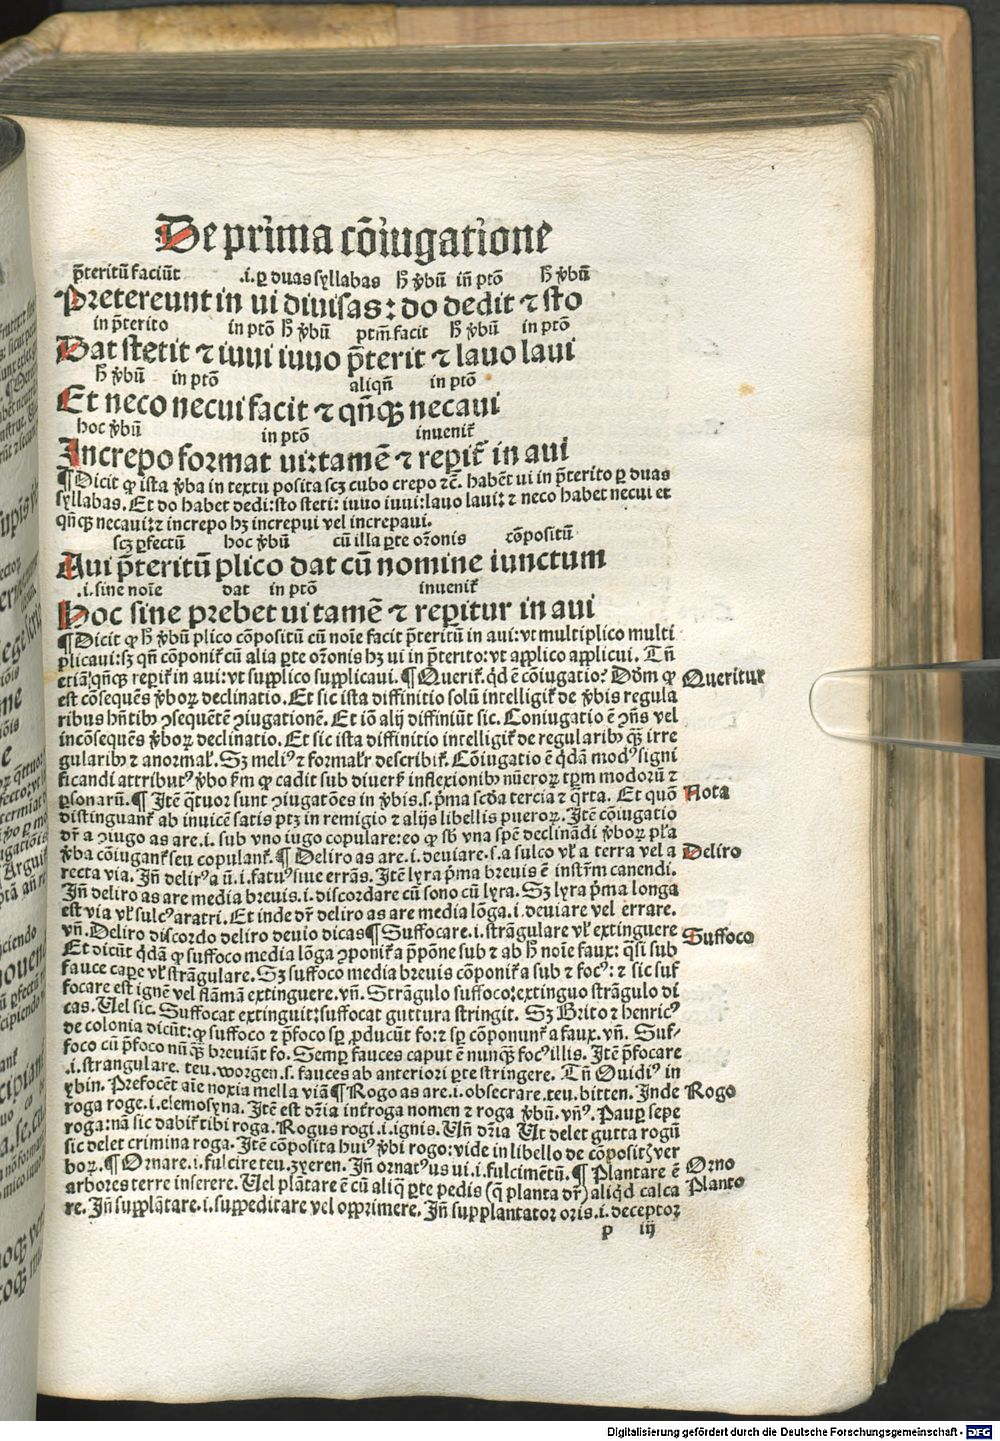 De prima cõiugatione
p̃teritũ faciũt .i. ꝑ duas syllabas h̃ v̓bũ iñ ptõ h̃ v̓bũ
Pretereunt in ui diuisas: do dedit ⁊ sto
in p̃terito in ptõ h̃ v̓bũ ptm̃ facit h̃ v̓bũ in ptõ
Dat stetit ⁊ iuui iuuo p̃terit ⁊ lauo laui
h̃ v̓bũ in ptõ aliqñ in ptõ
Et neco necui facit ⁊ qñqꝫ necaui
hoc v̓bũ in ptõ inuenit᷑
Increpo format ui: tamẽ ⁊ reperit᷑ in aui
¶ Dicit ꝙ ista v̓ba in textu posita scꝫ cubo crepo ⁊c̃. habẽt ui in p̃terito ꝑ duas
syllabas. Et do habet dedi: sto steti: iuuo iuui: lauo laui: ⁊ neco habet necui et
qñqꝫ necaui: ⁊ increpo hꝫ increpui vel increpaui.
scꝫ ꝑfectũ hoc v̓bũ cũ illa ꝑte or̃onis cõpositũ
Aui p̃teritũ plico dat cũ nomine iunctum
.i. sine noĩe dat in ptõ inuenit᷑
Hoc sine prebet ui tamẽ ⁊ reperitur in aui
¶ Dicit ꝙ h̃ v̓bũ plico cõpositũ cũ noĩe facit p̃teritũ in aui: vt multiplico multi
plicaui: sꝫ qñ cõponit᷑ cũ alia ꝑte or̃onis hꝫ ui in p̃terito: vt applico applicui. Tñ
etiã qñqꝫ reperit᷑ in aui: vt supplico supplicaui. ¶ Querit᷑. qd̓ ẽ cõiugatio? Dd̓m ꝙ
Queritur
est cõsequẽs v̓boꝝ declinatio. Et sic ista diffinitio solũ intelligit᷑ de v̓bis regula
ribus hñtibꝰ ꝯsequẽtẽ ꝯiugationẽ. Et iõ alij diffiniũt sic. Coniugatio ẽ ꝯñs vel
incõsequẽs v̓boꝝ declinatio. Et sic ista diffinitio intelligit᷑ de regularibꝰ qꝫ irre
gularibꝰ ⁊ anormał. Sꝫ meliꝰ ⁊ formalꝰ describit᷑. Cõiugatio ẽ qd̓dã modꝰ signi
ficandi attributꝰ v̓bo ẜm ꝙ cadit sub diuersis inflexionibꝰ nũeroꝝ tp̃m modorũ ⁊
ꝑsonarũ. ¶ Itẽ q̃tuor sunt ꝯiugatões in v̓bis .s. p̃ma scd̓a tercia ⁊ q̃rta. Et quõ
Nota
distinguant᷑ ab inuicẽ satis ptꝫ in remigio ⁊ alijs libellis pueroꝝ. Itẽ cõiugatio
dr̃ a ꝯiugo as are .i. sub vno iugo copulare: eo ꝙ sb̓ vna spẽ declinãdi v̓boꝝ pl̃a
v̓ba cõiugant᷑ seu copulant᷑. ¶ Deliro as are .i. deuiare .s. a sulco vł a terra vel a
Deliro
recta via. Iñ delirꝰ a ũ .i. fatuꝰ siue errãs. Itẽ lyra p̃ma breuis ẽ instr̃m canendi.
Iñ deliro as are media breuis .i. discordare cũ sono cũ lyra. Sꝫ lyra p̃ma longa
est via vł sulcꝰ aratri. Et inde dr̃ deliro as are media lõga .i. deuiare vel errare.
vñ. Deliro discordo deliro deuio dicas ¶ Suffocare .i. strãgulare vł extinguere
Suffoco
Et dicũt qd̓ã ꝙ suffoco media lõga ꝯponit᷑ a p̃põne sub ⁊ ab h̃ noĩe faux: q̃si sub
fauce caꝑe vł strãgulare. Sꝫ suffoco media breuis cõponit᷑ a sub ⁊ focꝰ: ⁊ sic suf
focare est ignẽ vel flãmã extinguere. vñ. Strãgulo suffoco: extinguo strãgulo di
cas. Uel sic. Suffocat extinguit: suffocat guttura stringit. Sꝫ Brito ⁊ henricꝰ
de colonia dicũt: ꝙ suffoco ⁊ p̃foco sꝑ ꝓducũt fo: ⁊ sꝑ cõponunt᷑ a faux. vñ. Suf-
foco cũ p̃foco nũqꝫ breuiãt fo. Semꝑ fauces caput ẽ nunqꝫ focꝰ illis. Itẽ p̃focare
.i. strangulare. teu. worgen .s. fauces ab anteriori ꝑte stringere. Tñ Ouidiꝰ in
ybin. Prefocẽt aĩe noxia mella viã ¶ Rogo as are .i. obsecrare. teu. bitten. Inde
Rogo
roga roge .i. elemosyna. Itẽ est dr̃ia int᷑ roga nomen ⁊ roga v̓bũ. vñꝰ. Pauꝑ sepe
roga: nã sic dabit᷑ tibi roga. Rogus rogi .i. ignis. Uñ dr̃ia Ut delet gutta rogũ
sic delet crimina roga. Itẽ cõposita huiꝰ v̓bi rogo: vide in libello de cõpositꝭ ver
boꝝ. ¶ Ornare .i. fulcire teu. zyeren. Iñ ornatꝰ us ui .i. fulcimẽtũ. ¶ Plantare ẽ
Orno
arbores terre inserere. Uel plãtare ẽ cũ aliq̃ ꝑte pedis (q̃ planta dr̃) aliqd̓ calca
Planto
re. Iñ supplãtare .i. suppeditare vel opprimere. Iñ supplantator oris .i. deceptor
p iij
Digitalisierung gefördert durch die Deutsche Forschungsgemeinschaft - DFG